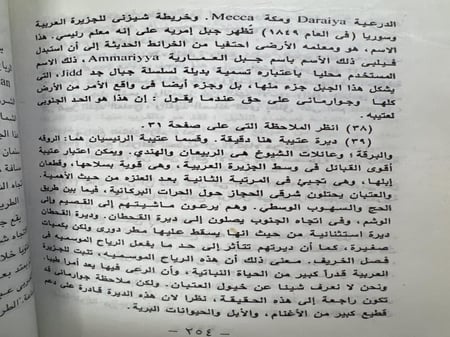 الدرعية Daraiya ومكة Mecca. وخريطة شيزنى للجزيرة العربية
وسوريا (فى العام ١٨٤٩) تظهر جبل إمرية على إنه معلم رئيسى. هذا
الاسم، هو ومعلمه الأرضى اختفيا من الخرائط الحديثة إلى أن استبدل
فيلبى ذلك الأسم باسم جبل العمارية Ammariyya، ذلك الاسم
المستخدم محليا باعتباره تسمية بديلة لسلسلة جبال جد Jidd، التى
يشكل هذا الجبل جزء منها، بل وجزء أيضا فى واقع الأمر من الأرض
كلها. وجوارمانى على حق عندما يقول: إن هذا هو الحد الجنوبى
لعتيبه.
(٣٨) انظر الملاحظة التى على صفحة ٣١.
(٣٩) ديرة عتيبة هنا دقيقة. وقسما عتيبة الرئيسيان هما: الروقه
والبرقة، وعائلات الشيوخ هى الربيعان والهندي. ويمكن اعتبار عتيبة
أقوى القبائل فى وسط الجزيرة العربية، وهى قوية بسلاحها، وقطعان
إبلها، وهى تجيئ فى المرتبة الثانية بعد العنزه من حيث الأهمية.
والعتبان يحتلون شرقى الحجاز حول الحرات البركانية، فيما بين طريق
الحج والسهوب الوسطى. وهم يرعون ماشيتهم إلى القصيم وإلى
الوشم، وفى اتجاه الجنوب يصلون إلى ديرة القحطان. وديرة القحطان
ديرة استثنائية من حيث انها يسقط عليها مطر دورى ولكن بكميات
صغيرة، كما أن ديرتهم تتأثر إلى حد ما بفعل الرياح الموسمية فى
فصل الخريف. معنى ذلك أن هذه الرياح الموسميه، تثبت للجزيرة
العربية قدرا كبير من الحياة النباتية، وأن الرعى فيها يعد أمرا طيبا.
ونحن لا نعرف شيئا عن خيول العتبان. ولكن ملاحظة جوارمانى قد
تكون راجعة إلى هذه الحقيقة، نظرا لان هذه الديرة قادرة على دعم
قطيع كبير من الأغنام، والأبل والحيوانات البرية.
- ٢٥٤ -